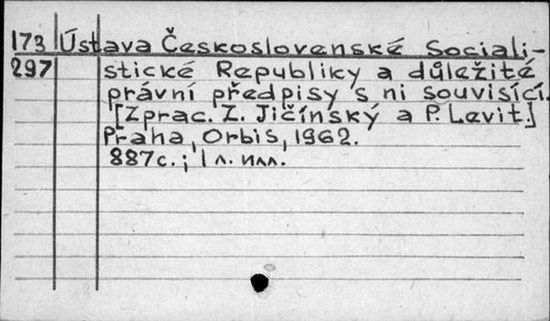 173 Ústava Československé Sociali-
297 stické Republiky a důležité
právní předpisy s ni souvisící.
[Zprac. Z. Jičínský a P. Levit.]
Praha, Orbis, 1962.
887с.; 1 л. илл.